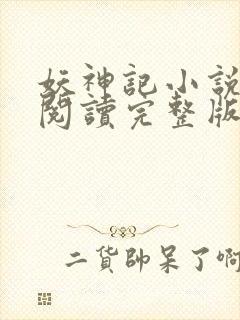 妖神記小說
閱讀完整版
二貨帥呆了啊